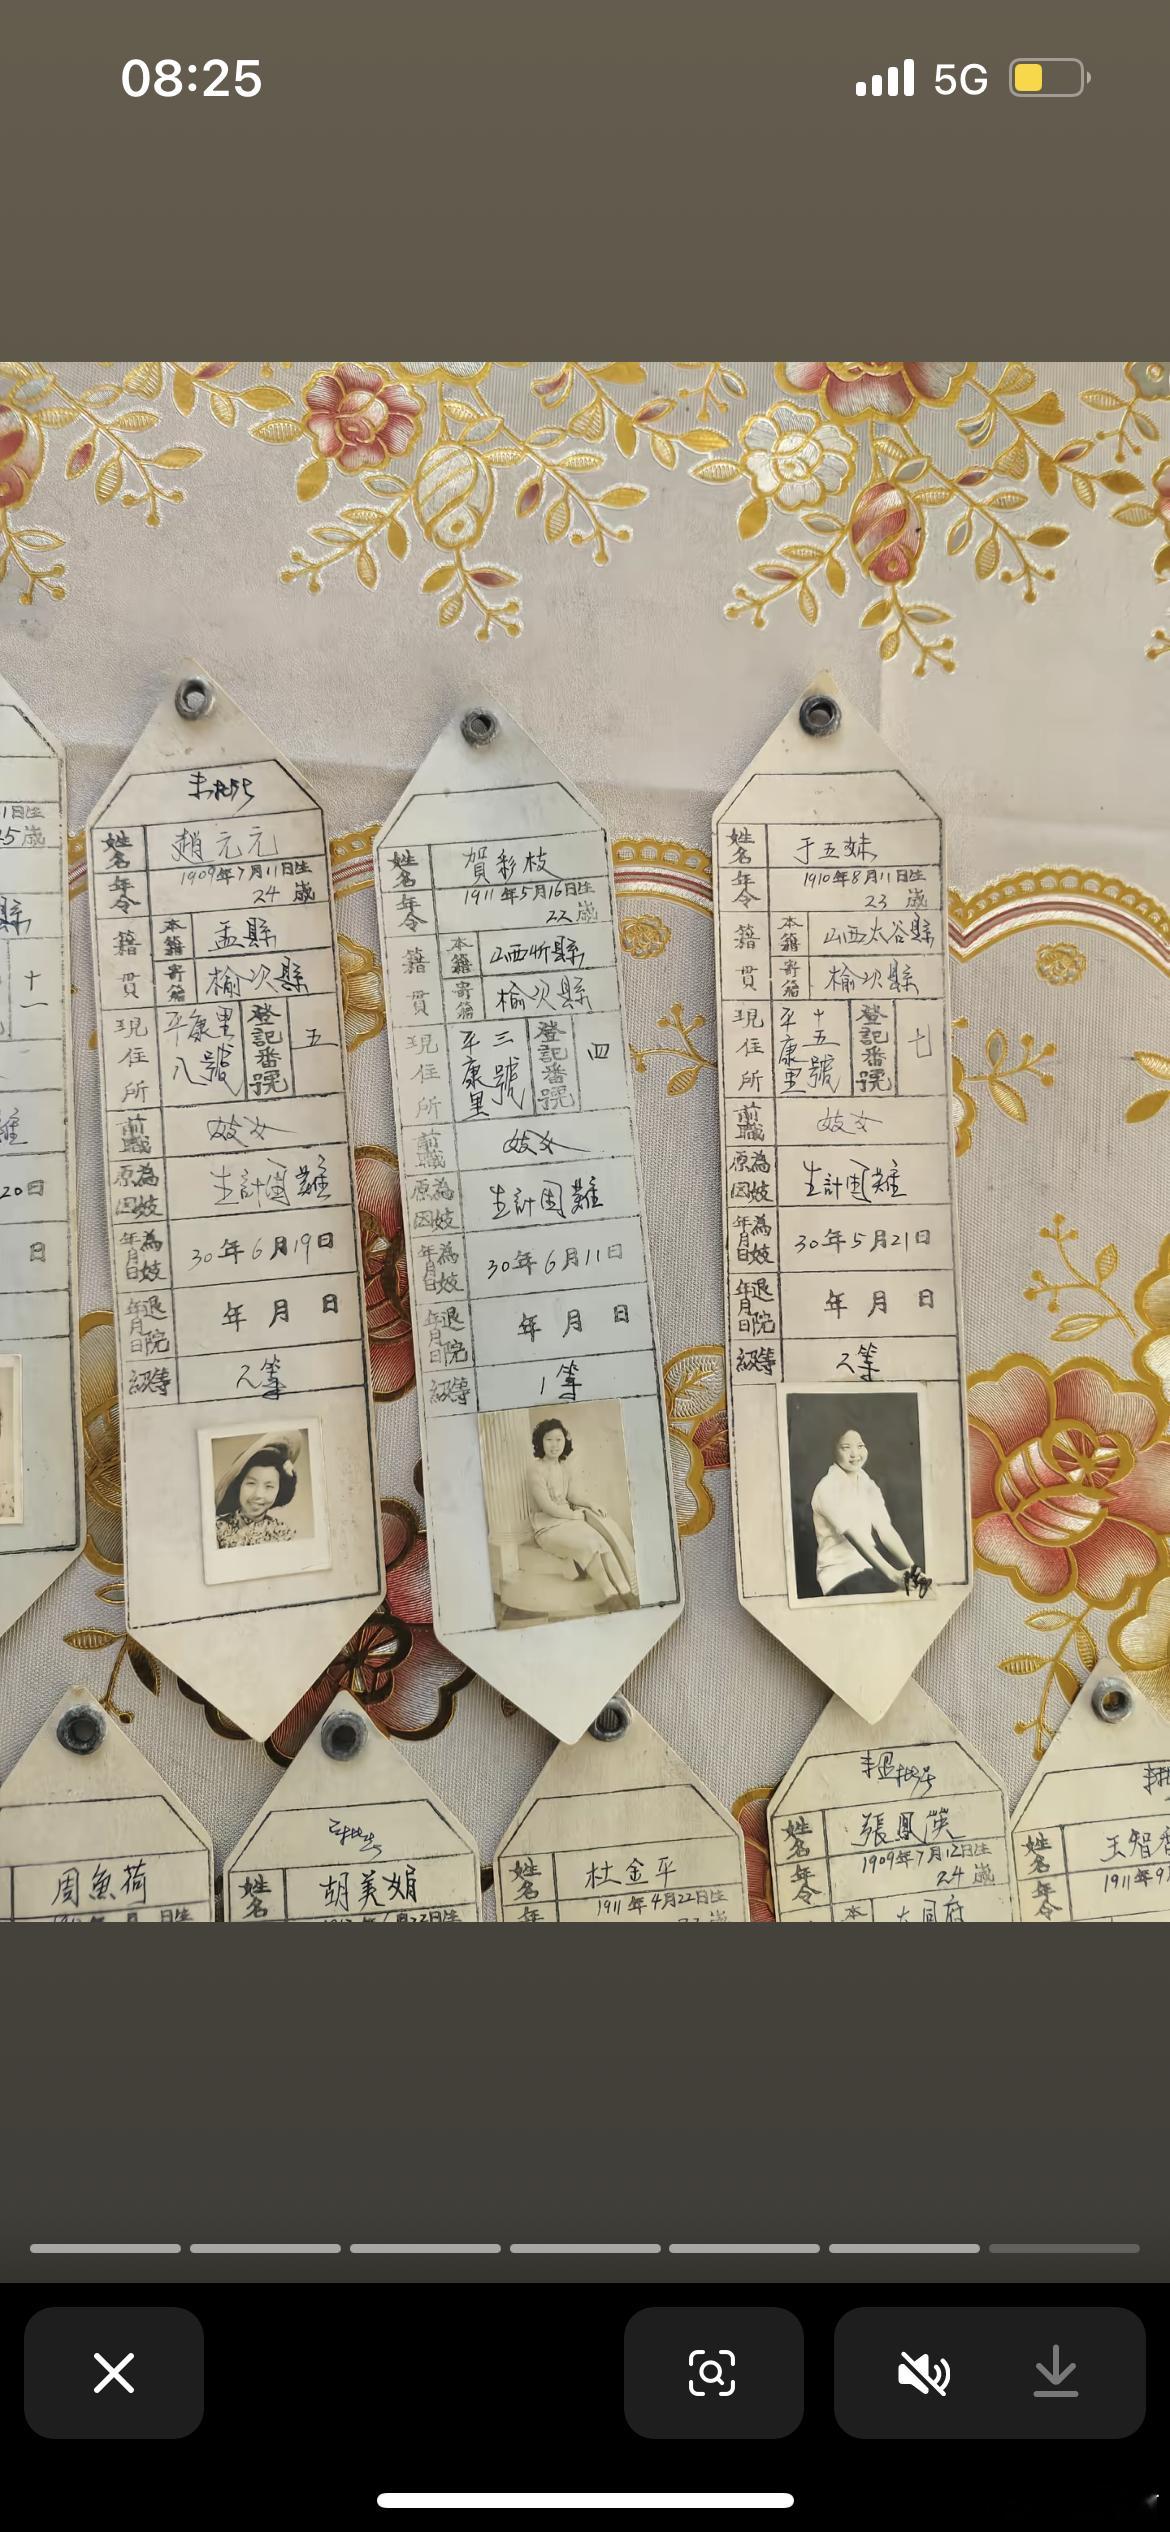 08:25
5G
1日生
25歲
縣
十一
難
20日
日
姓名 趙元元
年令 1909年7月11日生
24歲
籍貫 本籍 盂縣
寄籍 榆次縣
現住所 平康里八號 登記番號 五
前職 妓女
為妓原因 生計困難
為妓年月日 30年6月19日
退院年月日 年 月 日
等級 2等
姓名 賀彩枝
年令 1911年5月16日生
22歲
籍貫 本籍 山西忻縣
寄籍 榆次縣
現住所 平康里三號 登記番號 四
前職 妓女
為妓原因 生計困難
為妓年月日 30年6月11日
退院年月日 年 月 日
等級 1等
姓名 于五妹
年令 1910年8月11日生
23歲
籍貫 本籍 山西太谷縣
寄籍 榆次縣
現住所 平康里十五號 登記番號 七
前職 妓女
為妓原因 生計困難
為妓年月日 30年5月21日
退院年月日 年 月 日
等級 2等
周魚荷
姓名 胡美娟
姓名 杜金平
年 1911年4月22日生
姓名 張鳳英
年令 1909年7月12日生
24歲
本 大同府
姓名 王智香
年令 1911年9